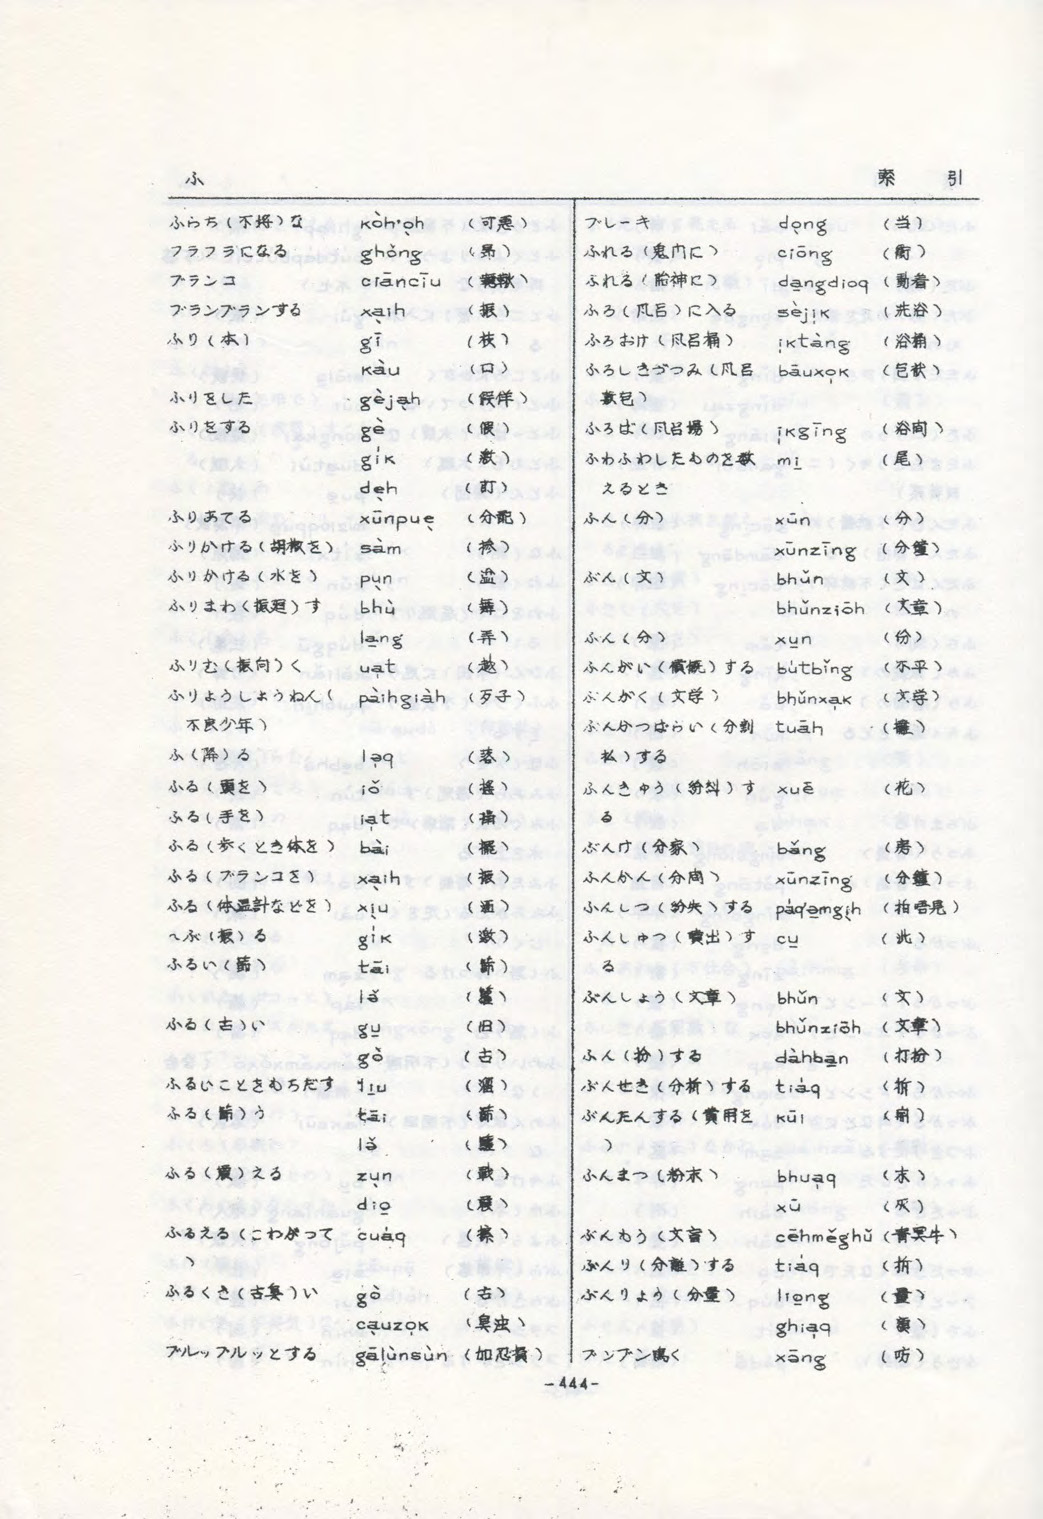 ふ
索 引
ふらち(不埒)な kòh·o̤h (可悪)
フラフラになる ghǒng (昂)
ブランコ ciānciū (鞦韆)
ブランブランする xa̤ih (振)
ふり(本) gī (枝)
kàu (口)
ふりをした gèja̤h (假佯)
ふりをする gè (假)
gík (激)
de̤h (訂)
ふりあてる xūnpue̤ (分配)
ふりかける(胡椒を) sàm (掺)
ふりかける(水を) pṳn (湓)
ふりまわ(振廻)す bhù (舞)
la̤ng (弄)
ふりむ(振向)く ua̤t (越)
ふりょうしょうねん( pàihgiàh (歹子)
不良少年)
ふ(降)る lə̤q (落)
ふる(頭を) iǒ (揺)
ふる(手を) ia̤t
ふる(歩くとき体を) bài (擺)
ふる(ブランコを) xa̤ih (振)
ふる(体温計などを) xi̤u
へぶ(振)る gík (激)
ふるい(篩) tāi (篩)
lǎ
ふる(古)い gṳ (旧)
gò (古)
ふるいことをもちだす li̤u (溜)
ふる(篩)う tāi (篩)
lǎ
ふる(震)える zṳn (戦)
dio̤
ふるえる(こわがって cuáq
)
ふるくさ(古臭)い gò (古)
ca̤uzo̤k (臭浊)
ブルップルッとする gālùnsùn (加忍損)
ブレーキ do̤ng (当)
ふれる(鬼門に) ciōng (衝)
ふれる(胎神に) da̤ngdioq (動着)
ふろ(風呂)に入る sèji̤k (洗浴)
ふろおけ(風呂桶) i̤ktàng (浴桶)
ふろしきづつみ(風呂 bāuxo̤k (包袱)
敷包)
ふろば(風呂場) i̤kgīng (浴間)
ふわふわしたものを数 mi̤ (尾)
えるとき
ふん(分) xūn (分)
xūnzīng (分鐘)
ぶん(文) bhǔn (文)
bhǔnziōh (文章)
ぶん(分) xṳn (份)
ふんがい(憤慨)する bútbǐng (不平)
ぶんがく(文学) bhǔnxa̤k (文学)
ぶんかつばらい(分割 tuāh (攤)
払)する
ふんきゅう(紛糾)す xuē (花)
る
ぶんけ(分家) bǎng (房)
ふんかん(分間) xūnzīng (分鐘)
ふんしつ(紛失)する páq'ə̄mgi̤h (拍唔見)
ふんしゅつ(噴出)す cṳ (泚)
る
ぶんしょう(文章) bhǔn (文)
bhǔnziōh (文章)
ふん(扮)する dàhba̤n (打扮)
ぶんせき(分析)する tiáq (拆)
ぶんたんする(費用を kūi (開)
)
ふんまつ(粉末) bhua̤q (末)
xū (灰)
ぶんもう(文盲) cēhměghǔ (青冥牛)
ぶんり(分離)する tiáq (拆)
ぶんりょう(分量) lio̤ng (量)
ghia̤q (額)
ブンブン鳴く xāng
-444-